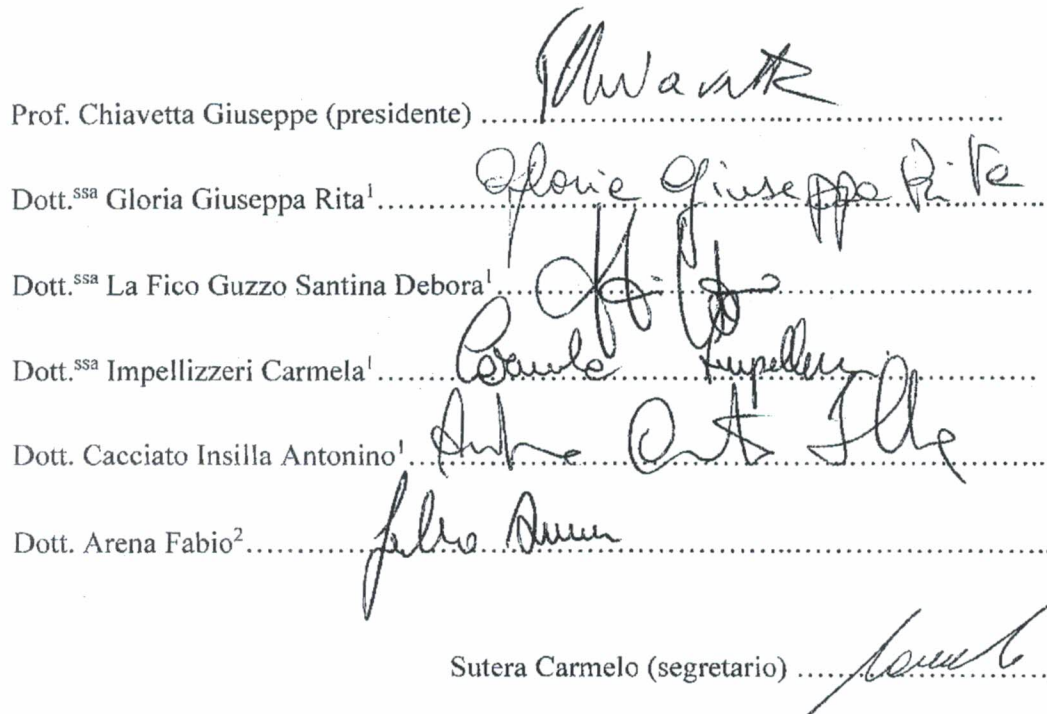 Prof. Chiavetta Giuseppe (presidente) ..... 
Dott.ssa Gloria Giuseppa Rita¹..... Gloria Giuseppa Rita
Dott.ssa La Fico Guzzo Santina Debora¹.....
Dott.ssa Impellizzeri Carmela¹..... Carmela Impellizzeri
Dott. Cacciato Insilla Antonino¹.....
Dott. Arena Fabio²..... Fabio Arena
Sutera Carmelo (segretario) .....